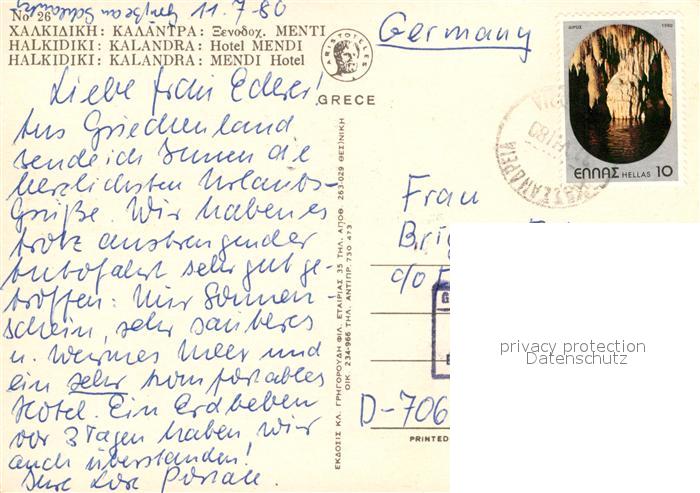 11.7.80
No 26
ΧΑΛΚΙΔΙΚΗ: ΚΑΛΑΝΤΡΑ: Ξενοδοχ. ΜΕΝΤΙ
HALKIDIKI: KALANDRA: Hotel MENDI
HALKIDIKI: KALANDRA: MENDI Hotel
ARISTOTELES
GRECE
Liebe Frau Ederer!
Aus Griechenland
sende ich Ihnen die
herzlichsten Urlaubs-
Grüße. Wir haben es
trotz anstrengender
Autofahrt sehr gut ge-
troffen: Nur Sonnen-
schein, sehr sauberes
u. warmes Meer und
ein sehr komfortables
Hotel. Ein Erdbeben
vor 3 Tagen haben wir
auch überstanden!
Ihre
ΕΚΔΟΣΙΣ ΚΛ. ΓΡΗΓΟΡΟΥΔΗ ΦΙΛ. ΕΤΑΙΡΙΑΣ 35 ΤΗΛ. ΑΠΟΘ. 263-029 ΘΕΣ)ΝΙΚΗ
ΟΙΚ. 234-966 ΤΗΛ. ΑΝΤΙΠΡ. 730 473
Germany
1980
ΕΛΛΑΣ HELLAS 10
Frau
Brig
c/o F
D-706
PRINTED
privacy protection
Datenschutz